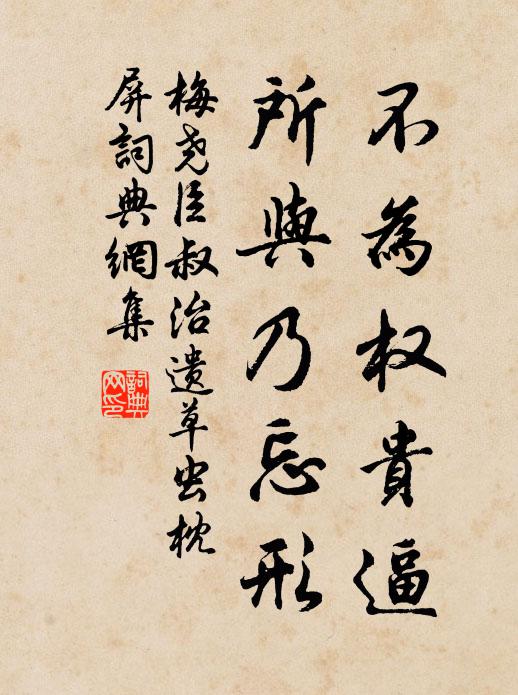 不為权貴逼
所與乃忘形
梅堯臣叔治遗草虫枕
屏詞典網集
詞典
网印